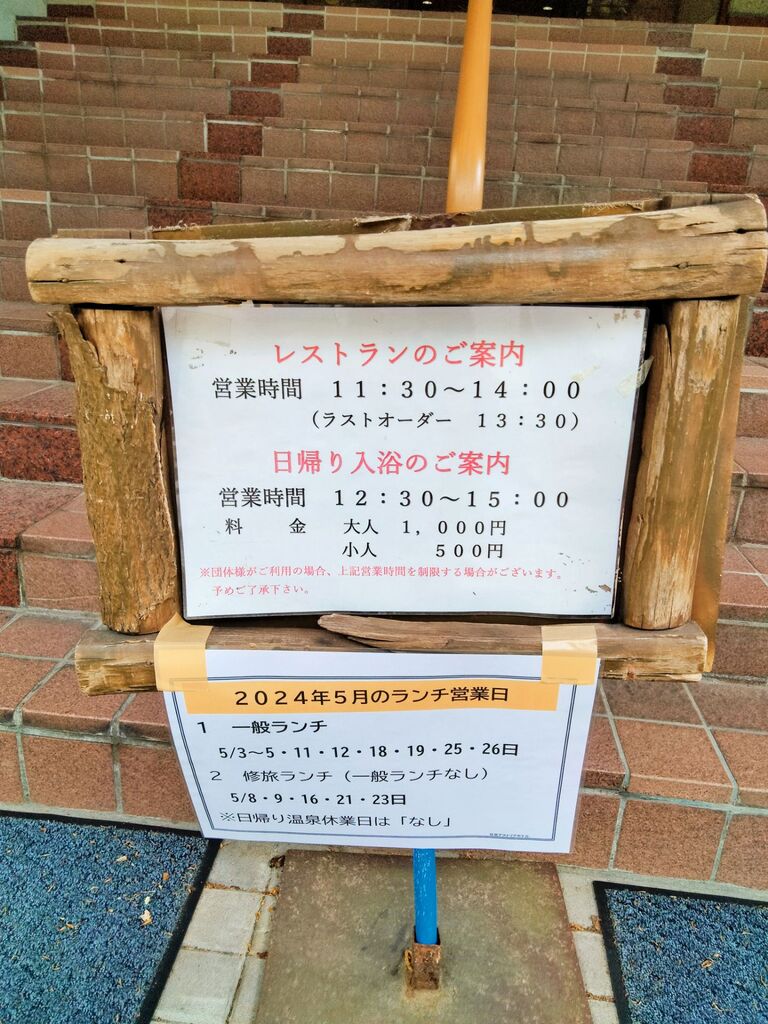 レストランのご案内
営業時間 11:30～14:00
(ラストオーダー 13:30)
日帰り入浴のご案内
営業時間 12:30～15:00
料 金 大人 1,000円
小人 500円
※団体様がご利用の場合、上記営業時間を制限する場合がございます。
予めご了承下さい。
2024年5月のランチ営業日
1 一般ランチ
5/3～5・11・12・18・19・25・26日
2 修旅ランチ（一般ランチなし）
5/8・9・16・21・23日
※日帰り温泉休業日は「なし」